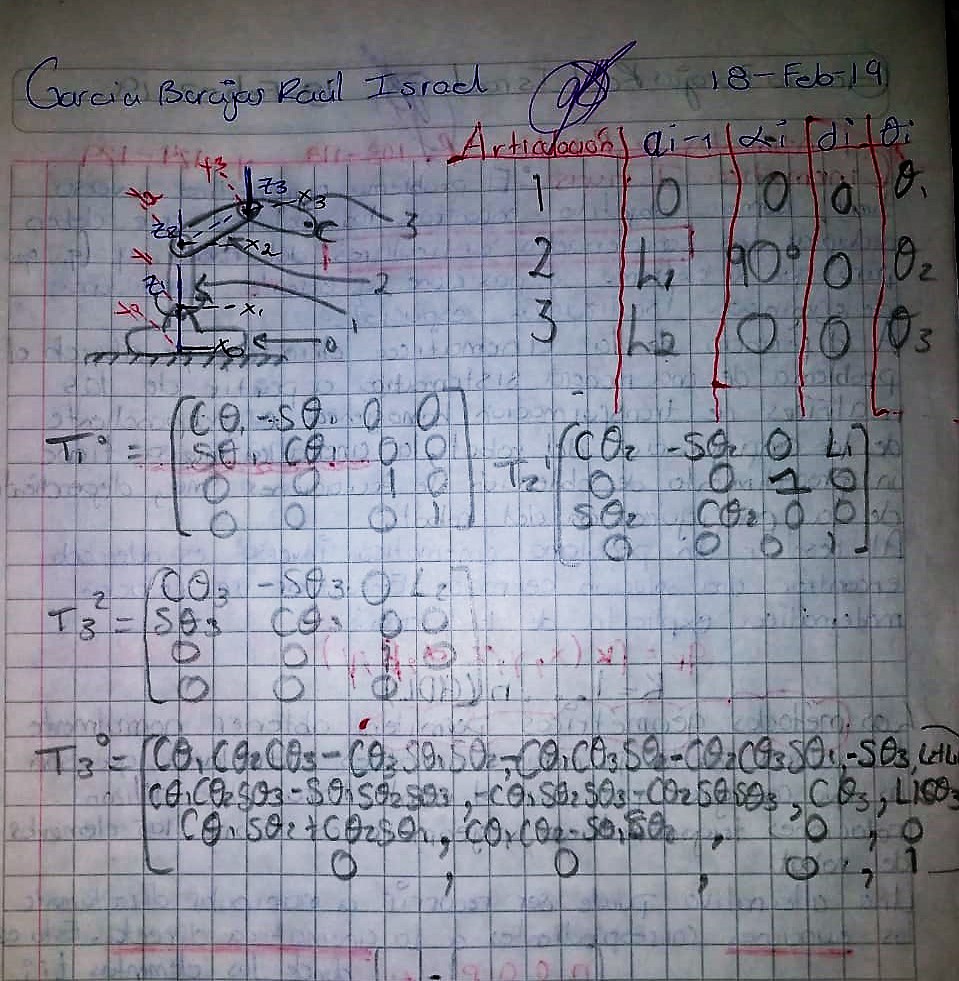 Garcia Barajas Raúl Israel 18-Feb-19
Articulación | ai-1 | αi | di | θi
1 0 0 0 θ1
2 L1 90° 0 θ2
3 L2 0 0 θ3
Y3 Z3 X3 3
Z2 X2 2
Z1 X1 1
X0 0
T1⁰ = [Cθ1 -Sθ1 0 0
Sθ1 Cθ1 0 0
0 0 1 0
0 0 0 1]
T2¹ [Cθ2 -Sθ2 0 L1
0 0 -1 0
Sθ2 Cθ2 0 0
0 0 0 1]
T3² = [Cθ3 -Sθ3 0 L2
Sθ3 Cθ3 0 0
0 0 1 0
0 0 0 1]
T3⁰ = [Cθ1Cθ2Cθ3 - Cθ3Sθ1Sθ2, -Cθ1Cθ3Sθ2 - Cθ2Cθ3Sθ1, -Sθ3, L2+L1
Cθ1Cθ2Sθ3 - Sθ1Sθ2Sθ3, -Cθ1Sθ2Sθ3 - Cθ2Sθ1Sθ3, Cθ3, L1Cθ3
Cθ1Sθ2 + Cθ2Sθ1, Cθ1Cθ2 - Sθ1Sθ2, 0, 0
0, 0, 0, 1